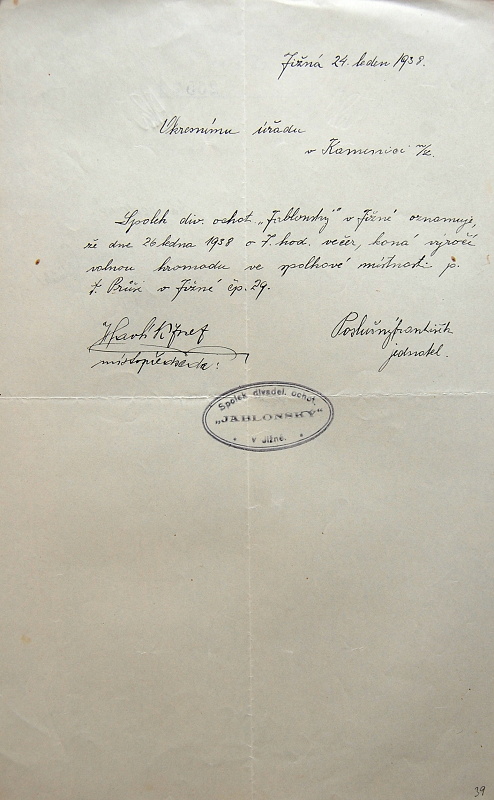 Jižná 24. leden 1938.
Okresnímu úřadu
v Kamenici n/L.
Spolek div. ochot. „Jablonský" v Jižné oznamuje,
že dne 26 ledna 1938 o 7. hod. večer, koná výročí
valnou hromadu ve spolkové místnosti p.
f. Průši v Jižné čp. 29.
Josef
Poslušný František
místopředseda:
jednatel.
Spolek divadel. ochot.
„JABLONSKÝ"
v Jižné.
39